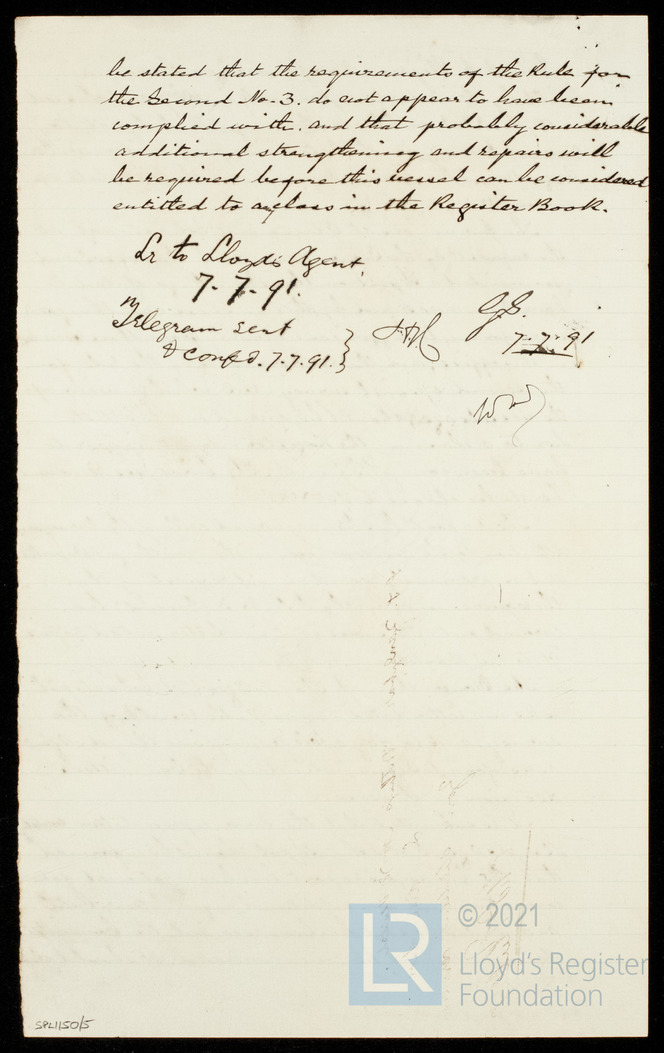 be stated that the requirements of the Rule for
the Second No. 3. do not appear to have been
complied with. and that probably considerable
additional strengthening and repairs will
be required before this vessel can be considered
entitled to a class in the Register Book.
Lr to Lloyd's Agent.
7-7-91.
Telegram sent
& confd. 7.7.91.
J.S.
7.7.91
SPL1150/5
LR
© 2021
Lloyd's Register
Foundation